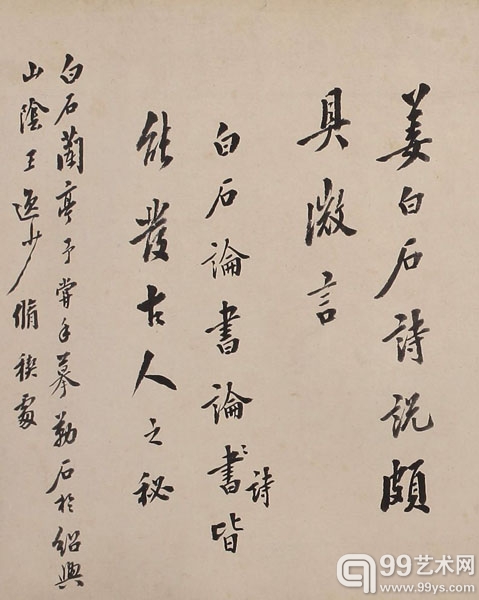 姜白石詩説頗
具微言
白石論書論書詩皆
能發古人之秘
白石蘭亭予嘗手摹勒石於紹興
山陰王逸少脩禊處
99艺术网
www.99ys.com